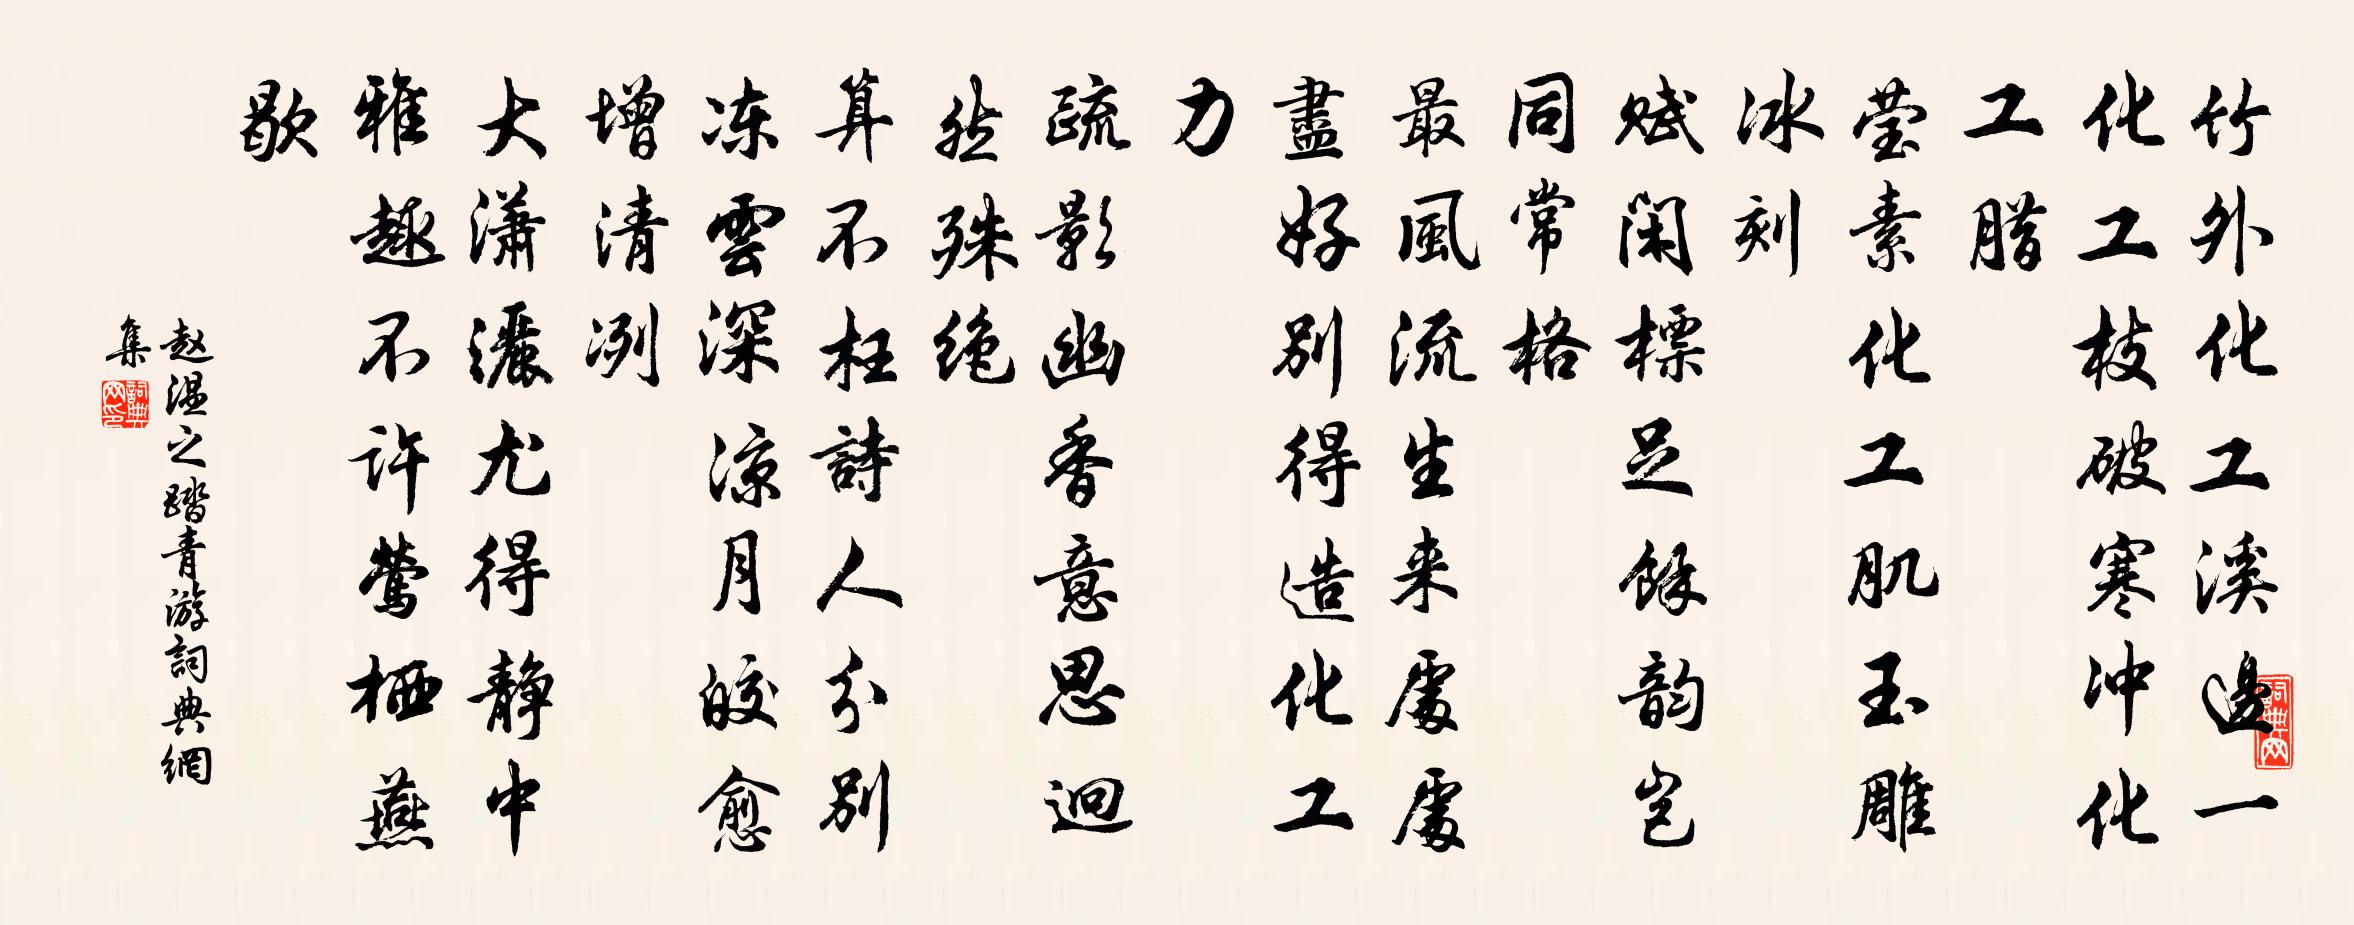 竹外化工溪邊一
化工枝破寒沖化
工腊
莹素化工肌玉雕
冰刻
赋闲標足餘韵岂
同常格
最風流生来處處
盡好别得造化工
力
疏影幽香意思迥
然殊绝
算不枉詩人分别
冻雲深凉月皎愈
增清冽
大潇灑尤得静中
雅趣不许莺栖燕
歇
赵温之踏青游詞典網
集
詞典网
詞典网印